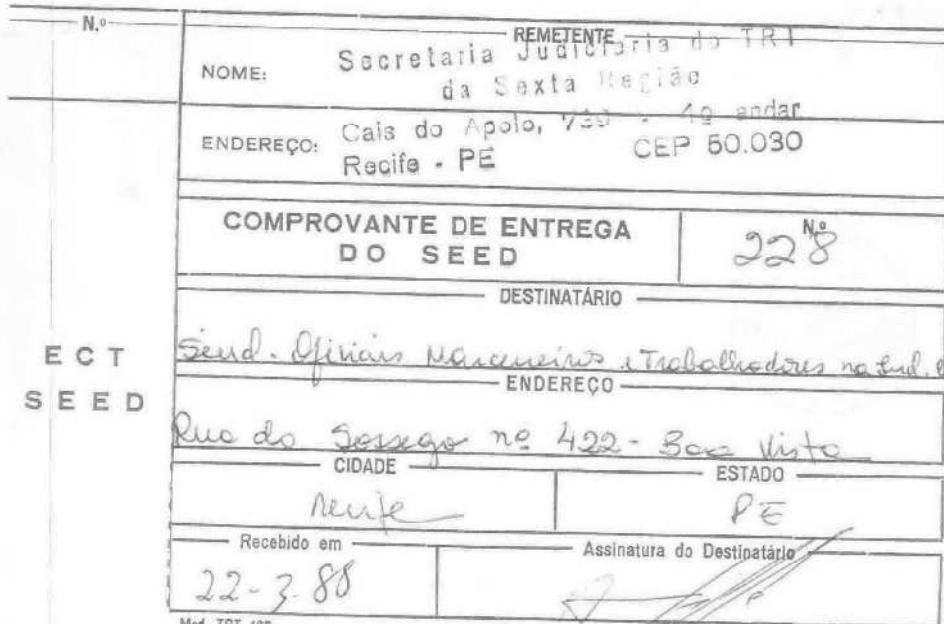 N.º
REMETENTE
NOME: Secretaria Judiciaria do TRT
da Sexta Região
ENDEREÇO: Cais do Apolo, 739 - 4º andar
Recife - PE CEP 50.030
COMPROVANTE DE ENTREGA
DO SEED
N.º
228
DESTINATÁRIO
ECT
SEED
Sind. Oficiais Marceneiros e Trabalhadores na Ind.
ENDEREÇO
Rua do Sossego nº 422 - Boa Vista
CIDADE
Recife
ESTADO
PE
Recebido em
22-3-88
Assinatura do Destinatário
Mod. TRT